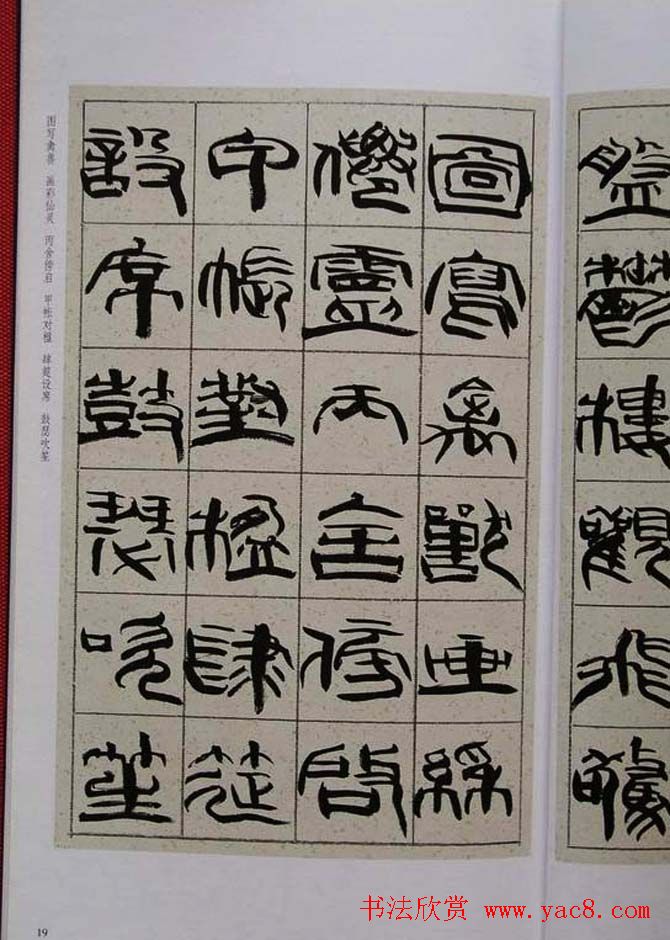 盤鬱樓觀飛驚
圖寫禽獸畫綵
僊靈丙舍傍啟
甲帳對楹肆筵
設席鼓瑟吹笙
图写禽兽 画彩仙灵 丙舍傍启 甲帐对楹 肆筵设席 鼓瑟吹笙
19
书法欣赏 www.yac8.com